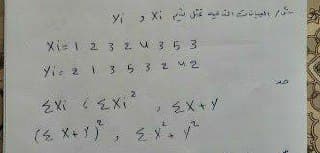 مثال/ البيانات التالية تمثل قيم Xi و Yi
Xi = 1 2 3 2 4 3 5 3
Yi = 2 1 3 5 3 2 4 2
جد
ΣXi ، ΣXi² , ΣX+Y
(ΣX+Y)² , ΣX²+Y²